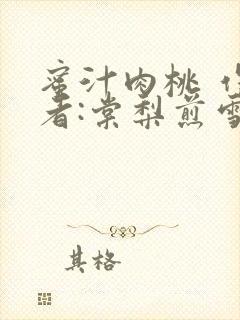 蜜汁肉桃
者:棠梨煎雪
其格